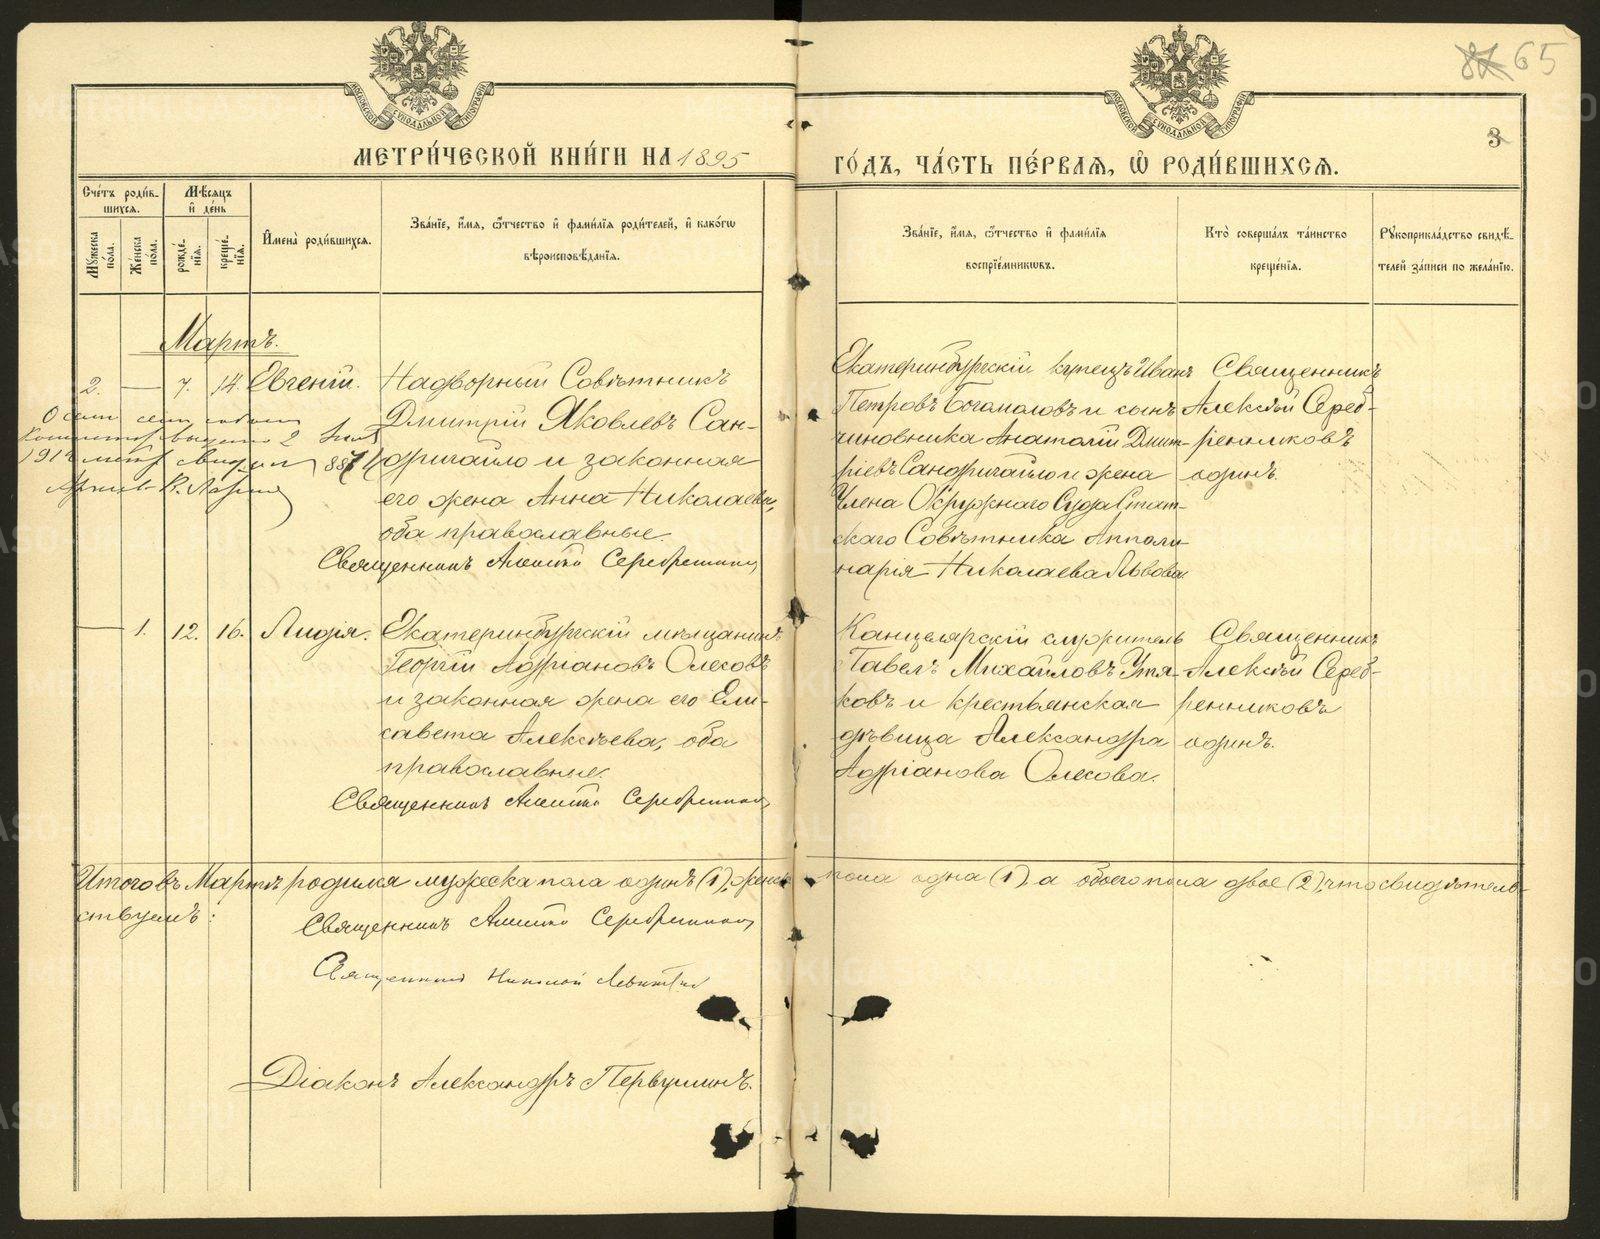 87 65
3
МЕТРИ́ЧЕСКОЙ КНИ́ГИ НА 1895
ГО́ДЪ, ЧА́СТЬ ПЕ́РВАЯ, Ѽ РОДИ́ВШИХСЯ.
Сче́тъ роди́в-
шихся.
Мѣ́сяцъ
и҆ де́нь
Му́жеска
по́ла.
Же́нска
по́ла.
рожде́-
нїя.
креще́-
нїя.
И҆мена̀ роди́вшихся.
Зва́нїе, и҆́мя, ѻ҆́тчество и҆ фами́лїя роди́телей, и҆ како́гѡ
вѣроисповѣ́данїя.
Зва́нїе, и҆́мя, ѻ҆́тчество и҆ фами́лїя
воспрїе́мникѡвъ.
Кто̀ соверша́лъ та́инство
креще́нїя.
Рꙋкоприкла́дство свидѣ́-
телей за́писи по жела́нїю.
Мартъ.
2. — 7. 14. Евгеній.
Надворный Совѣтникъ
Дмитрій Яковлевъ Сан-
фричайло и законная
его жена Анна Николаева,
оба православные.
Священникъ Алексій Серебренников
Екатеринбургскій купецъ Иванъ
Петровъ Богомоловъ и сынъ
чиновника Анатолій Дмит-
ріевъ Санфричайло и жена
Члена Окружнаго Суда Стат-
скаго Совѣтника Апполи-
нарія Николаева Львова
Священникъ
Алексѣй Сереб-
ренниковъ
одинъ.
— 1. 12. 16. Лидія.
Екатеринбургскій мѣщанинъ
Георгій Адріановъ Олесовъ
и законная жена его Ели-
савета Алексѣева, оба
православные.
Священникъ Алексій Серебренников
Канцелярскій служитель
Павелъ Михайловъ Утя-
ковъ и крестьянская
дѣвица Александра
Адріанова Олесова.
Священникъ
Алексѣй Сереб-
ренниковъ
одинъ.
Итого въ Мартѣ родился мужеска пола одинъ (1), женска пола одна (1) а обоего пола двое (2), что свидѣтель-
ствуемъ:
Священникъ Алексій Серебренников
Священникъ Николай Левитскій
Діаконъ Александръ Первушинъ.